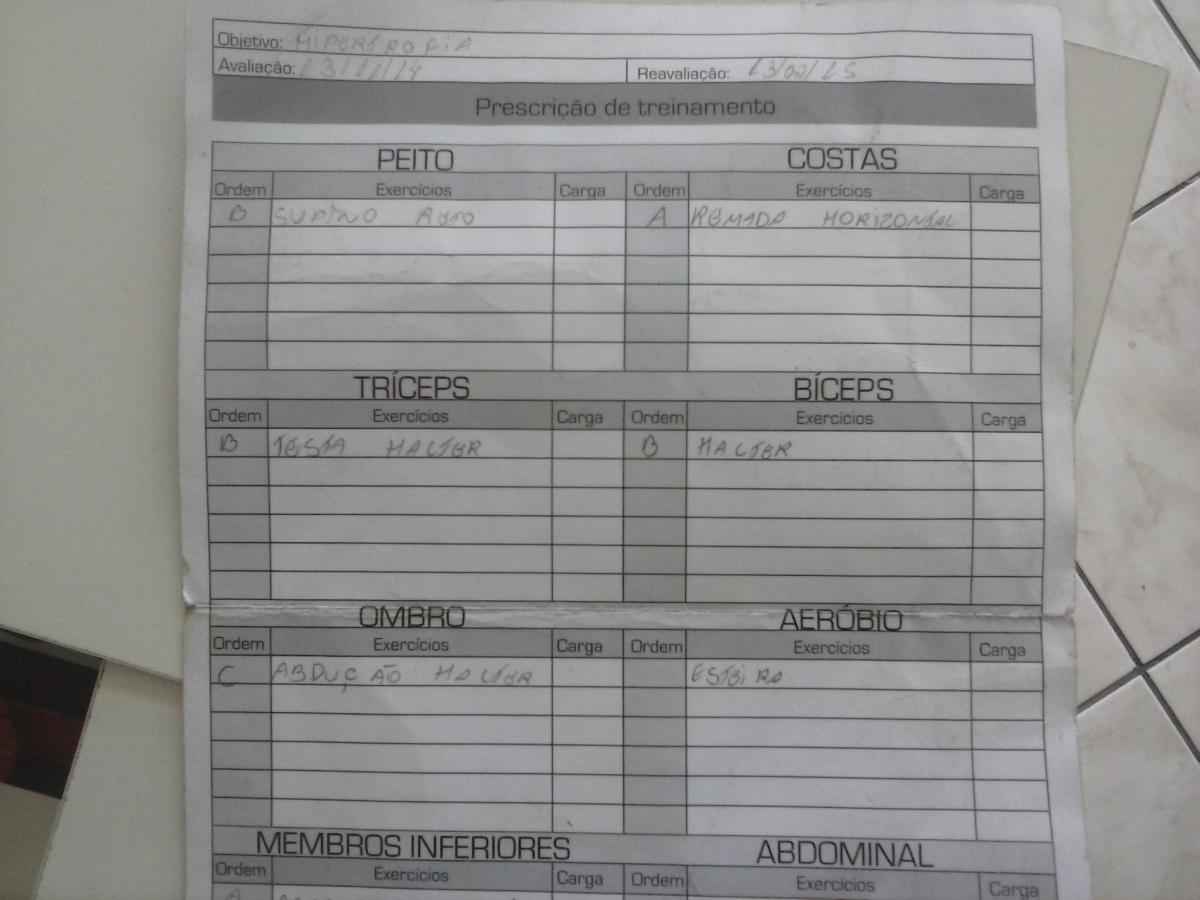 Objetivo: HIPERTROFIA
Avaliação: 13/11/14 Reavaliação: 13/02/15
Prescrição de treinamento
PEITO COSTAS
Ordem Exercícios Carga Ordem Exercícios Carga
B SUPINO RETO A REMADA HORIZONTAL
TRÍCEPS BÍCEPS
Ordem Exercícios Carga Ordem Exercícios Carga
B TESTA HALTER B HALTER
OMBRO AERÓBIO
Ordem Exercícios Carga Ordem Exercícios Carga
C ABDUÇÃO HALTER ESTEIRA
MEMBROS INFERIORES ABDOMINAL
Ordem Exercícios Carga Ordem Exercícios Carga
A